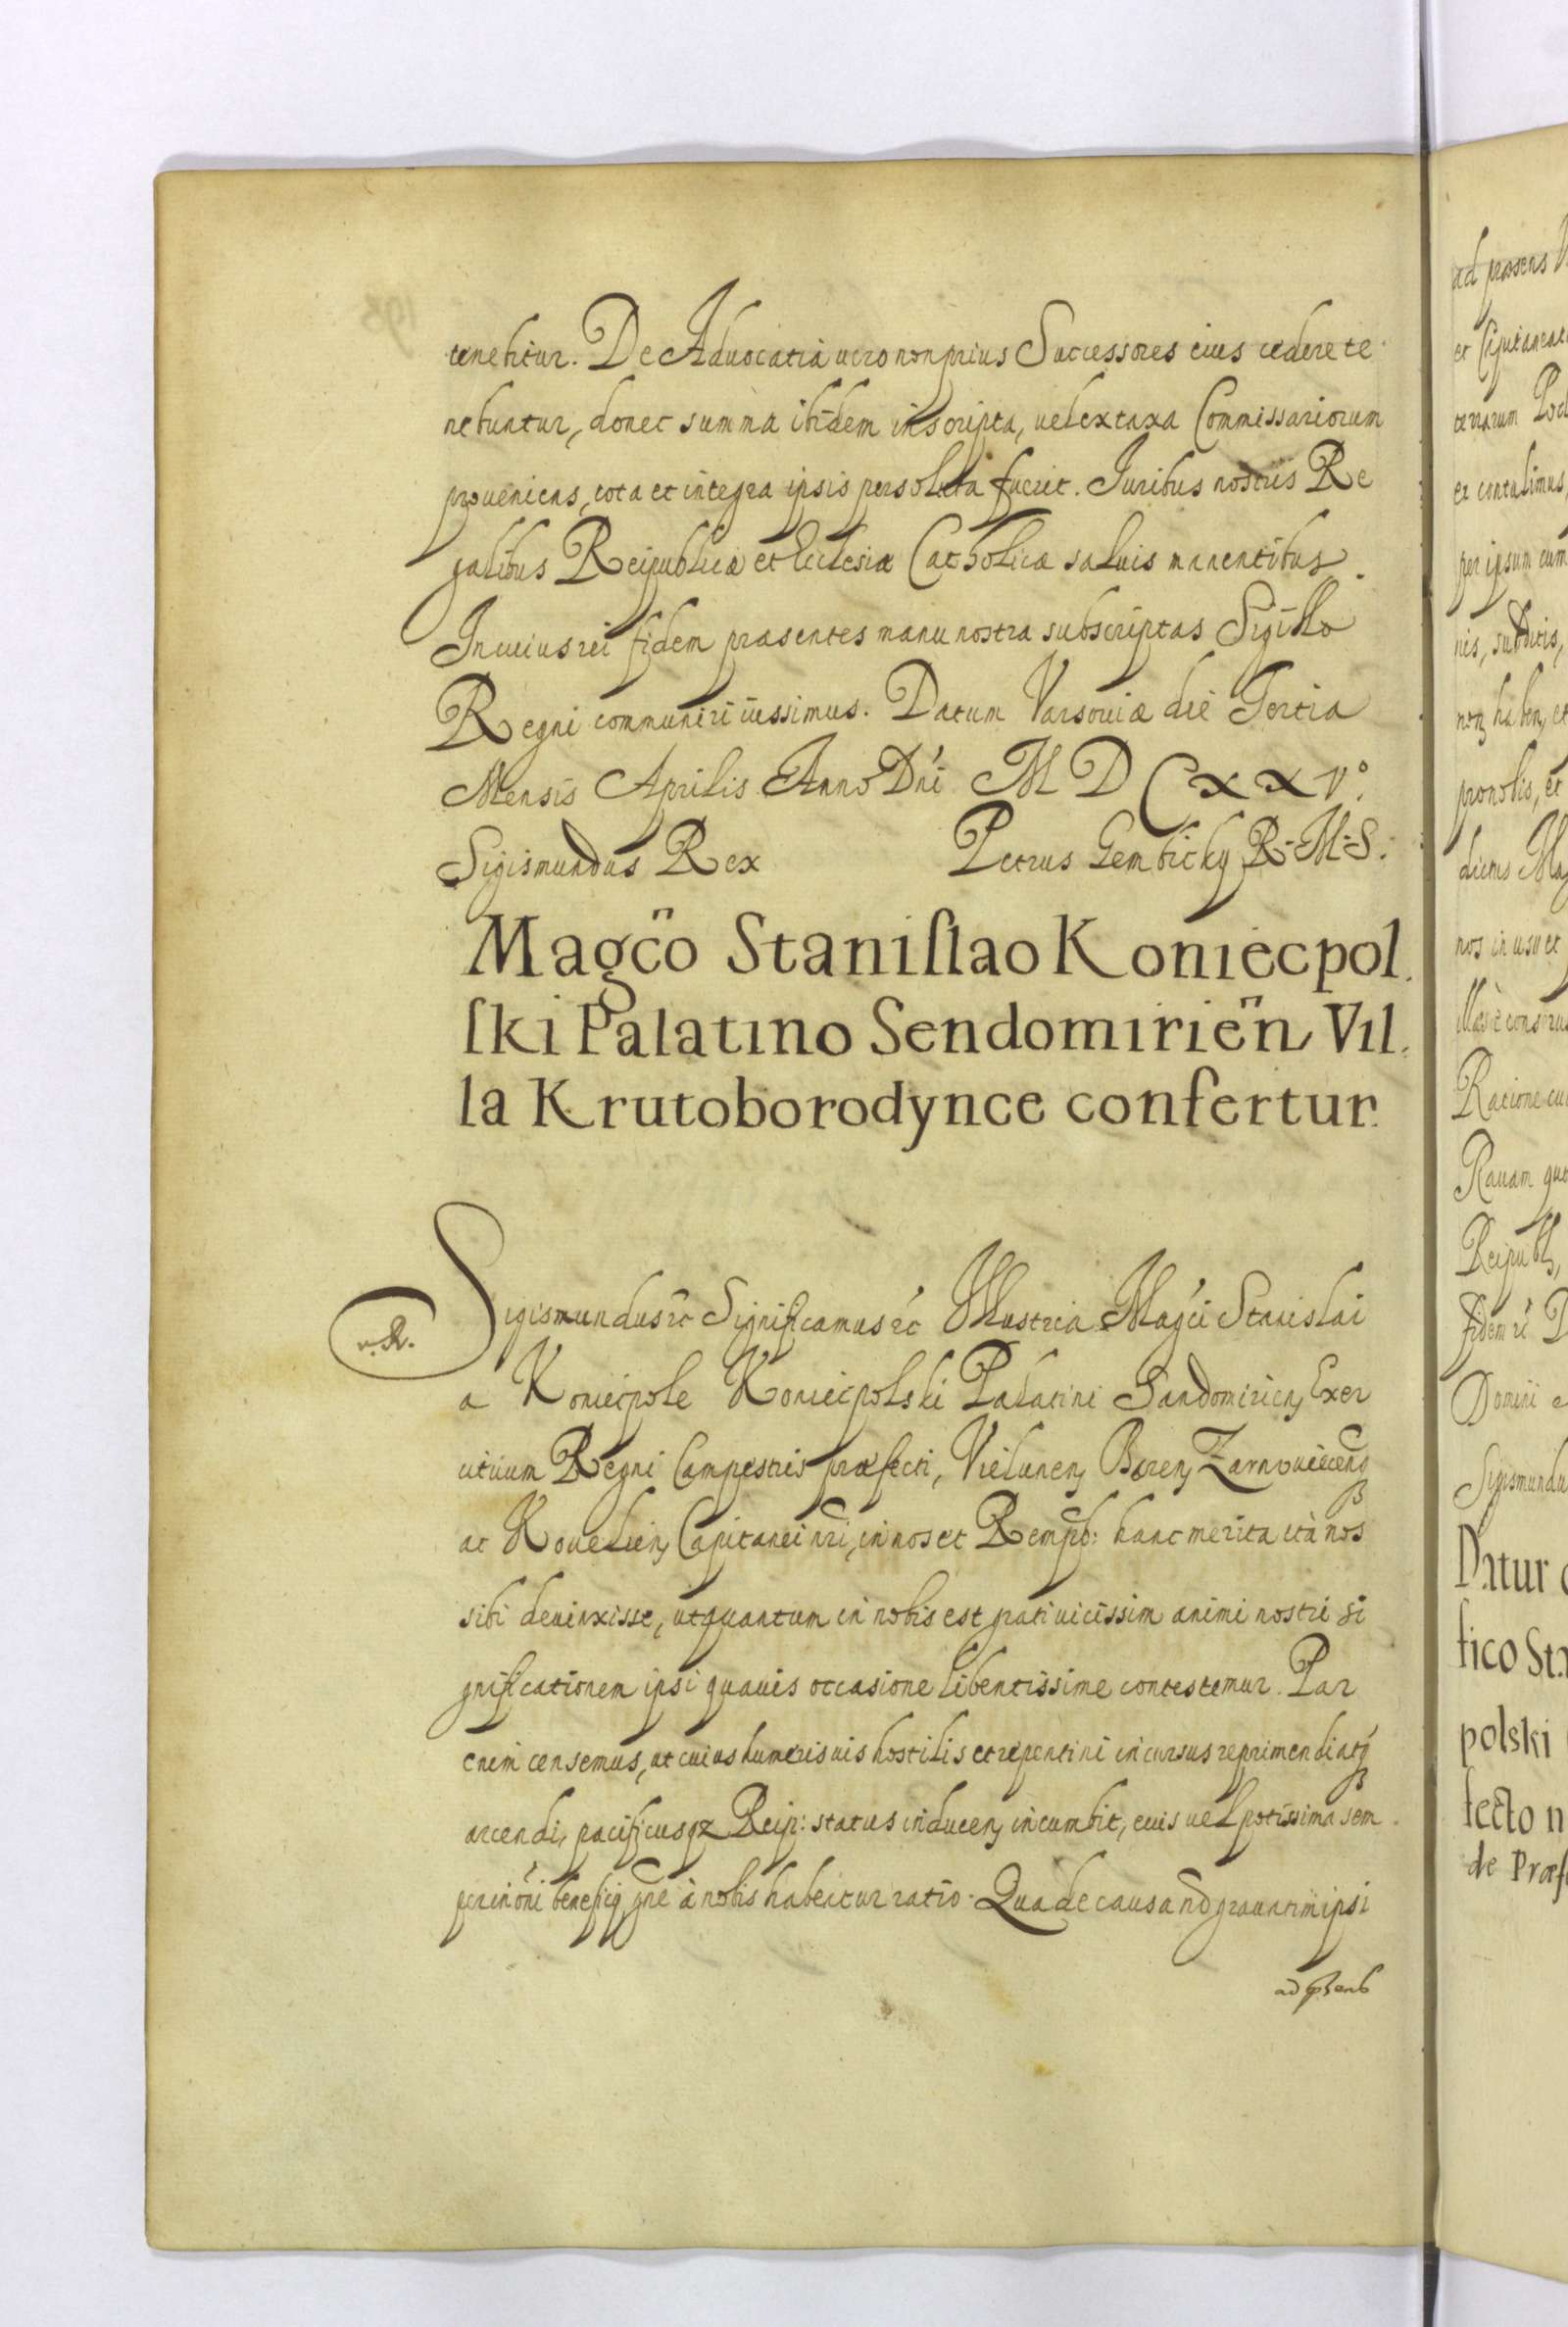 tenebitur. De Aduocatia uero non prius Successores eius cedere te
nebuntur, donec summa ibidem inscripta, uel ex taxa Commissariorum
proueniens, tota et integra ipsis persoluta fuerit. Iuribus nostris Re
galibus Reipublicæ et Ecclesiæ Catholicæ saluis manentibus.
In cuius rei fidem præsentes manu nostra subscriptas Sigillo
Regni communiri iussimus. Datum Varsouiæ die Tertia
Mensis Aprilis Anno Dni M D C X X V°.
Sigismundus Rex Petrus Gembicky R. M. S.
Magco Staniſlao Koniecpol
ſki Palatino Sendomirien Vil
la Krutoborodynce confertur.
Sigismundus etc Significamus etc Illustria Magci Stanislai
v. R.
a Koniecpole Koniecpolski Palatini Sandomirien, Exer
cituum Regni Campestris præfecti, Vielunen, Boren, Zarnouiecen,
ac Kouelien, Capitanei nri, in nos et Rempb: hanc merita ità nos
sibi deuinxisse, ut quantum in nobis est grati uicissim animi nostri si
gnificationem ipsi quauis occasione libentissime contestemur. Par
enim censemus, ut cuius humeris uis hostilis et repentini incursus reprimendi atq
arcendi, pacificusqz Reip: status inducen, incumbit, eius uel potissima sem
per in oni beneficiorum gne à nobis habeatur ratio. Qua de causa no grauatim ipsi
ad præsens
ad præsens
et Capitaneat
terrarum Pod
et contulimus
per ipsum cum
nis, subditis,
non haben, et
pro nobis, et
dictus Mag
nos in usu et
Ratione cui
Rauam qua
Reipubl,
fidem rei D
Domini
Sigismundu
Datur
fico St
polski
fecto n
de Præf